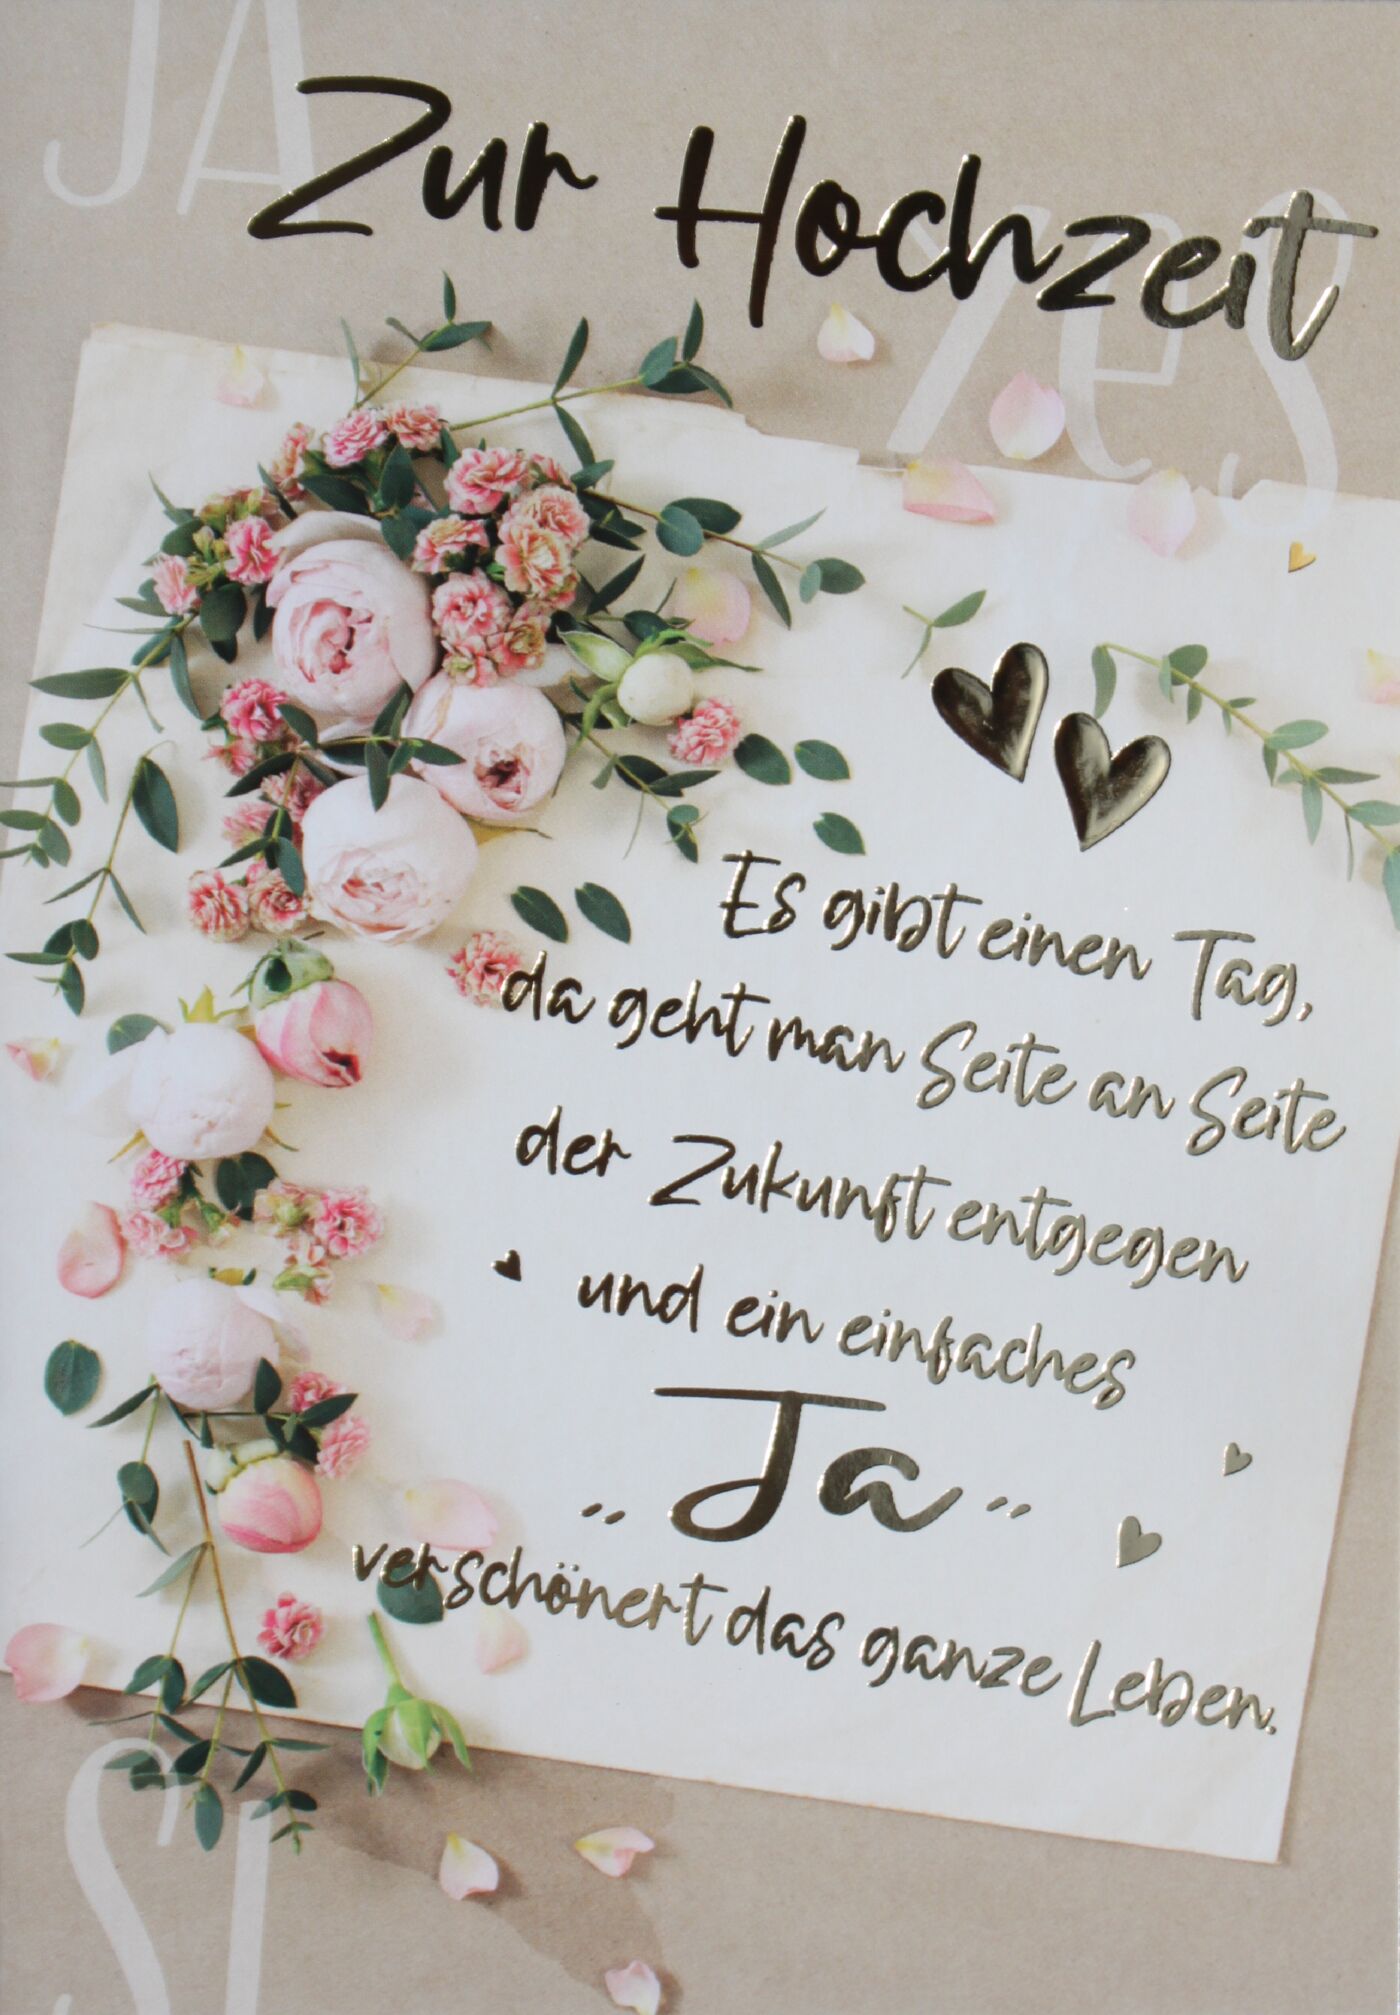 JA
Zur Hochzeit
yes
Es gibt einen Tag,
da geht man Seite an Seite
der Zukunft entgegen
und ein einfaches
„Ja“
verschönert das ganze Leben.
SI